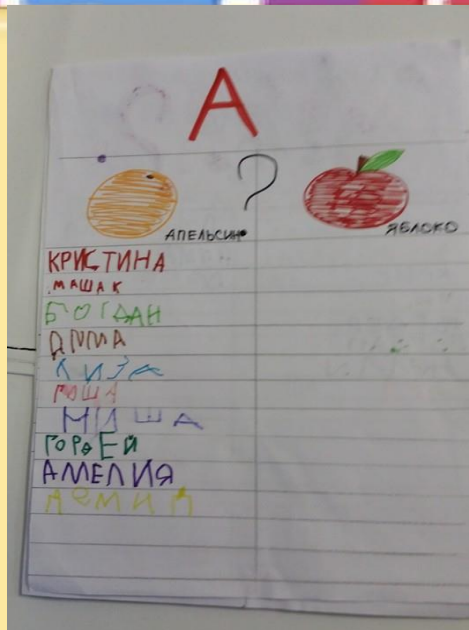 А
?
АПЕЛЬСИН
ЯБЛОКО
КРИСТИНА
МАША К
БОГДАН
ДИМА
ЛИЗА
МАША
МИША
ГОРДЕЙ
АМЕЛИЯ
ДЕМИД